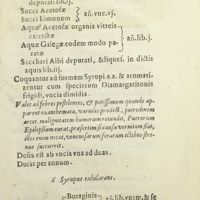 depurati lib.j.
Succi Acetosæ
Succi limonum
añ.vnc.vj.
Aquæ Acetosæ organis vitreis
extractæ
Aquæ Galegæ eodem modo pa-
ratæ
añ.lib.j.
Sacchari Albi depurati, & liquef. in dictis
aquis lib.iij.
Coquantur ad formam Syrupi. s.a. & aromati-
zentur cum specierum Diamargaritonis
frigidi, vncia dimidia.
Valet ad febres pestilentes, & potissimum quando ap-
parent exanthemata, variolis prodest, putredinem
arcet, malignitatem humorum retundit, Puerorum
Epilepsiam curat, præsertim si causa vermium fiat,
alios enim necat, venenosarum ferarum ictibus
succurrit.
Dosis est ab vncia vna ad duas.
Durat per annum.
6 Syrupus exhilarans.
Boraginis
añ.lib.vnam, & se